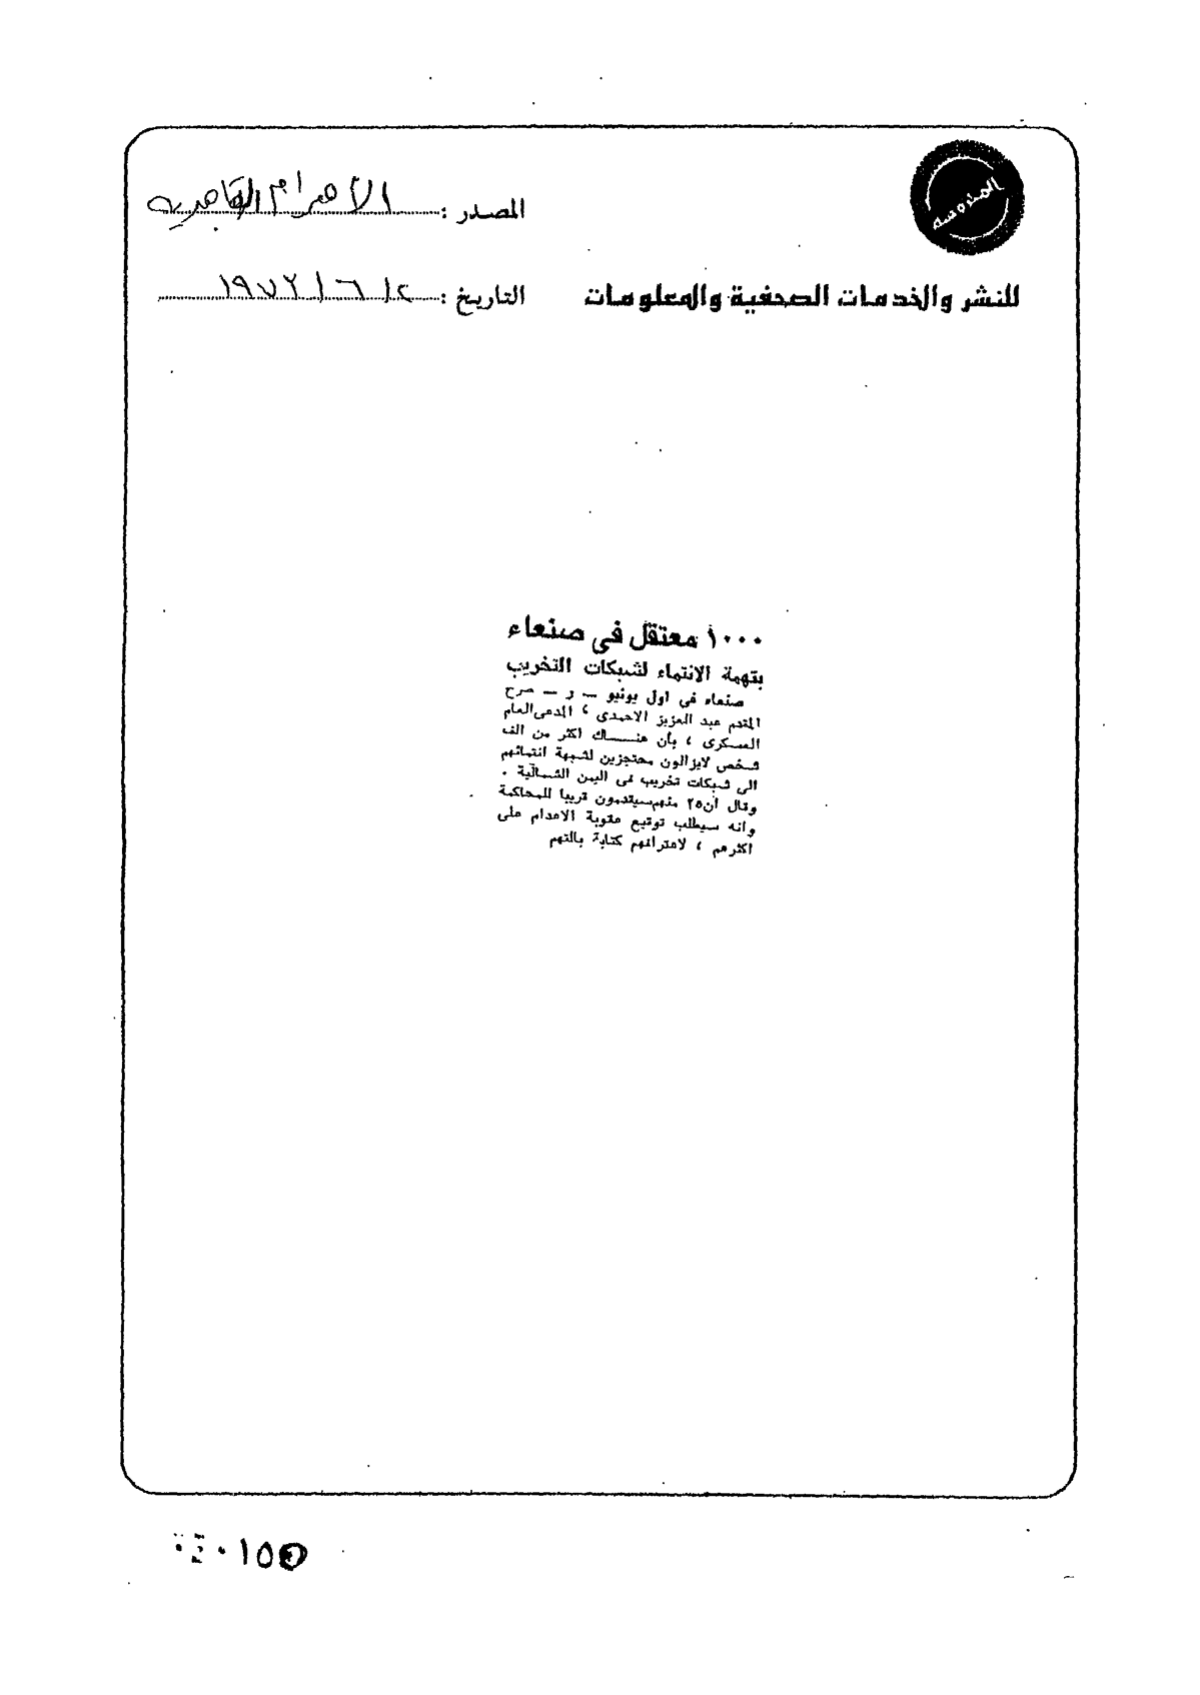 المحروسة
المصدر : الأهرام القاهرية
للنشر والخدمات الصحفية والمعلومات
التاريخ : ٢ / ٦ / ١٩٧٢
١٠٠٠ معتقل فى صنعاء
بتهمة الانتماء لشبكات التخريب
صنعاء فى اول يونيو ــ ر ــ صرح
المقدم عبد العزيز الاحمدى ، المدعى العام
العسكرى ، بأن هنــاك اكثر من الف
شخص لايزالون محتجزين لشبهة انتمائهم
الى شبكات تخريب فى اليمن الشمالية .
وقال ان ٢٥ منهم سيقدمون قريبا للمحاكمة
وانه سيطلب توقيع عقوبة الاعدام على
اكثرهم ، لاعترافهم كتابة بالتهم